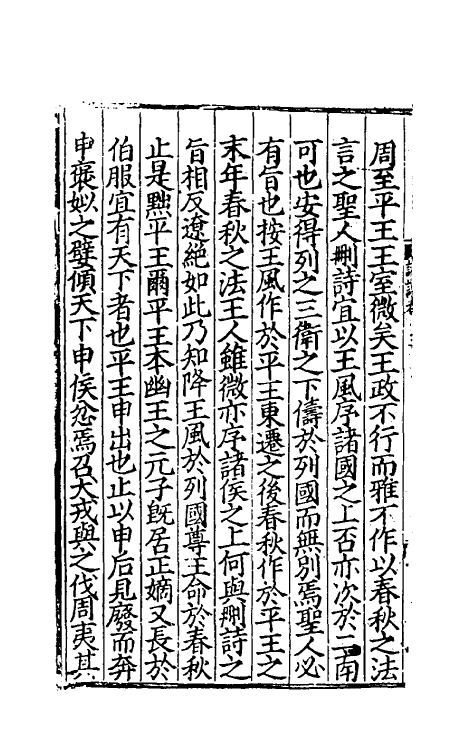 周至平王王室微矣王政不行而雅不作以春秋之法
言之聖人刪詩宜以王風序諸國之上否亦次於二南
可也安得列之三衛之下儔於列國而無別焉聖人必
有旨也按王風作於平王東遷之後春秋作於平王之
末年春秋之法王人雖微亦序諸侯之上何與刪詩之
旨相反遼絕如此乃知降王風於列國尊王命於春秋
止是黜平王爾平王本幽王之元子旣居正嫡又長於
伯服宜有天下者也平王申出也止以申后見廢而奔
申襃姒之嬖傾天下申侯忿焉召犬戎與之伐周夷其